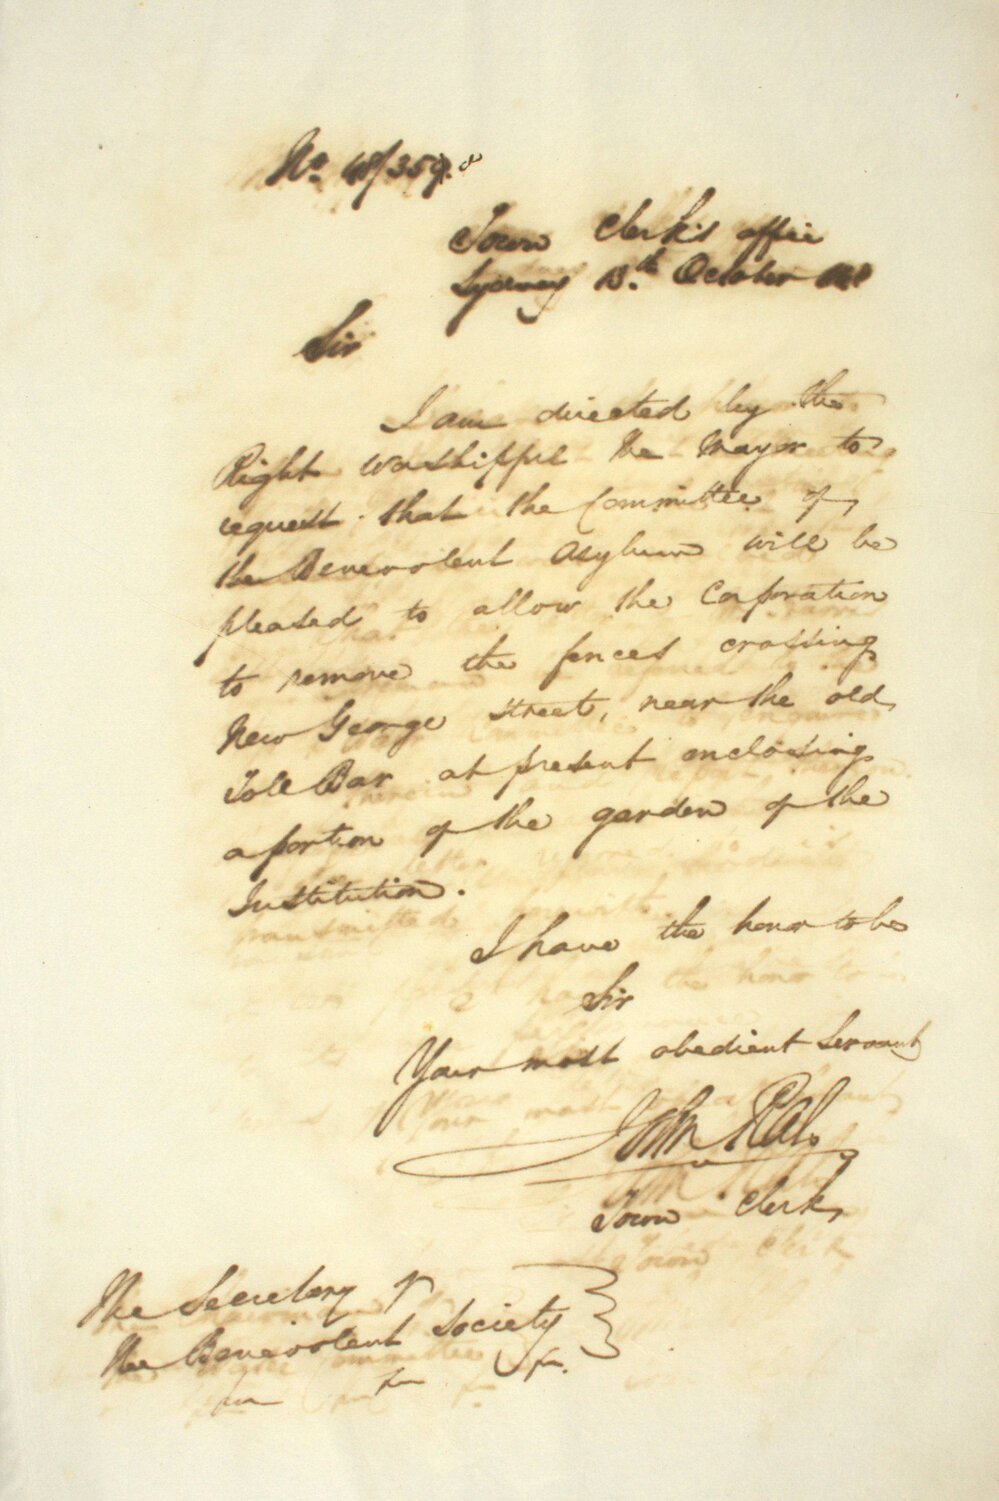 No. 48/359.
Town Clerk's office
Sydney 13.th October
Sir
I am directed by the
Right Worshipful the Mayor to
request that the Committee of
the Benevolent Asylum will be
pleased to allow the Corporation
to remove the fences crossing
New George Street, near the old
Toll Bar at present enclosing
a portion of the garden of the
Institution.
I have the honor to be
Sir
Your most obedient Servant
John Rae
Town Clerk
The Secretary of
the Benevolent Society